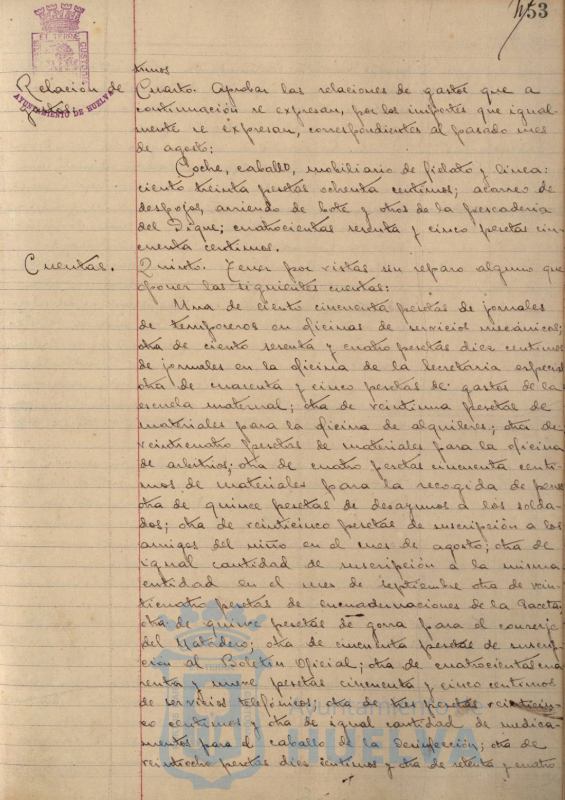 153
AYUNTAMIENTO DE HUELVA
timos
Relación de
gastos.
Cuarto. Aprobar las relaciones de gastos que a
continuación se expresan, por los importes que igual-
mente se expresan, correspondientes al pasado mes
de agosto;
Coche, caballo, mobiliario de fielato y linea:
ciento treinta pesetas ochenta centimos; acarreo de
despojos, arriendo de bote y otros de la pescaderia
del Dique; cuatrocientas setenta y cinco pesetas cin-
cuenta centimos.
Cuentas.
Quinto. Tener por vistas sin reparo alguno que
oponer las siguientes cuentas:
Una de ciento cincuenta pesetas de jornales
de temporeros en oficinas de servicios mecánicos;
otra de ciento setenta y cuatro pesetas diez centimos
de jornales en la oficina de la Secretaria especial
otra de cuarenta y cinco pesetas de gastos de la
escuela maternal; otra de veintiuna pesetas de
materiales para la oficina de alquileres; otra de
veinticuatro pesetas de materiales para la oficina
de arbitrios; otra de cuatro pesetas cincuenta centi-
mos de materiales para la recogida de perros
otra de quince pesetas de desayunos a los solda-
dos; otra de veinticinco pesetas de suscripción a los
amigos del niño en el mes de agosto; otra de
igual cantidad de suscripción a la misma
entidad en el mes de septiembre otra de vein-
ticuatro pesetas de encuadernaciones de la Gaceta;
otra de quince pesetas de gorra para el conserje
del Matadero; otra de cincuenta pesetas de suscrip-
ción al Boletin Oficial; otra de cuatrocientas cua-
renta y nueve pesetas cincuenta y cinco centimos
de servicios telefónicos; otra de tres pesetas veinticin-
co centimos y otra de igual cantidad de medica-
mentos para el caballo de la Desinfección; otra de
veintiocho pesetas diez centimos y otra de setenta y cuatro
Ayuntamiento de
HUELVA